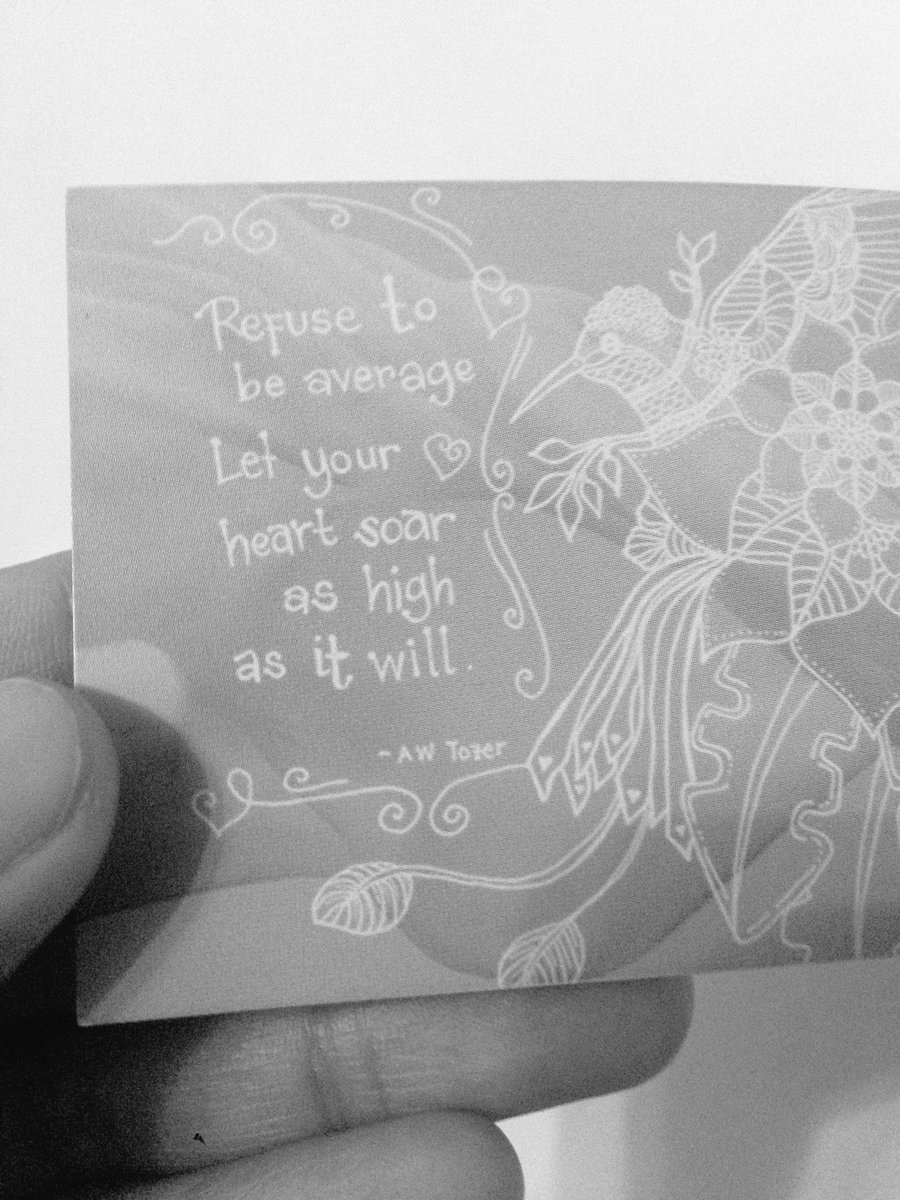 Refuse to
be average
Let your
heart soar
as high
as it will.
~ A W Tozer